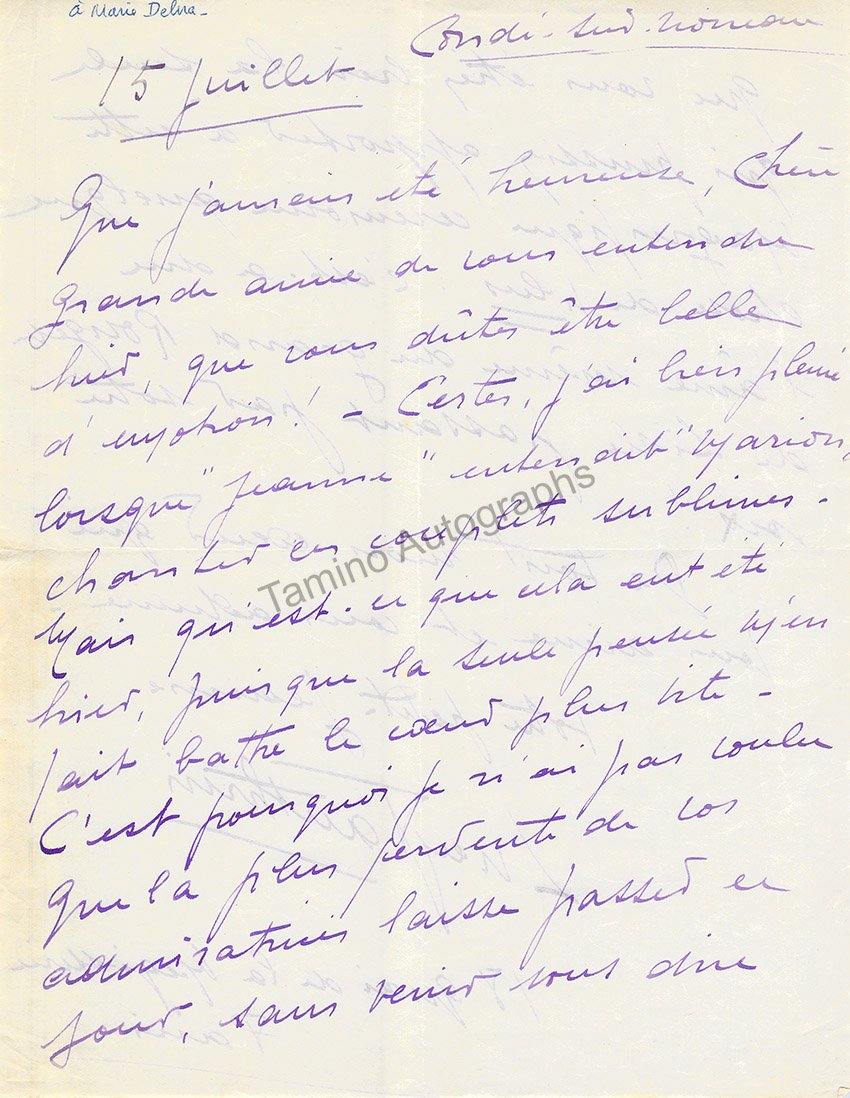 à Marie Delna -
Condé-sur-Noireau
15 Juillet
Que j'aurais été heureuse, Chère
grande amie de vous entendre
hier, que vous dûtes être belle
d'émotion! - Certes, j'ai bien pleuré
lorsque "Jeanne" entendit "Marion"
chanter ces couplets sublimes -
Mais qu'est-ce que cela eut été
hier, puisque la seule pensée m'en
fait battre le cœur plus vite -
C'est pourquoi je n'ai pas voulu
que la plus fervente de vos
admiratrices laisse passer ce
jour, sans venir vous dire
Tamino Autographs